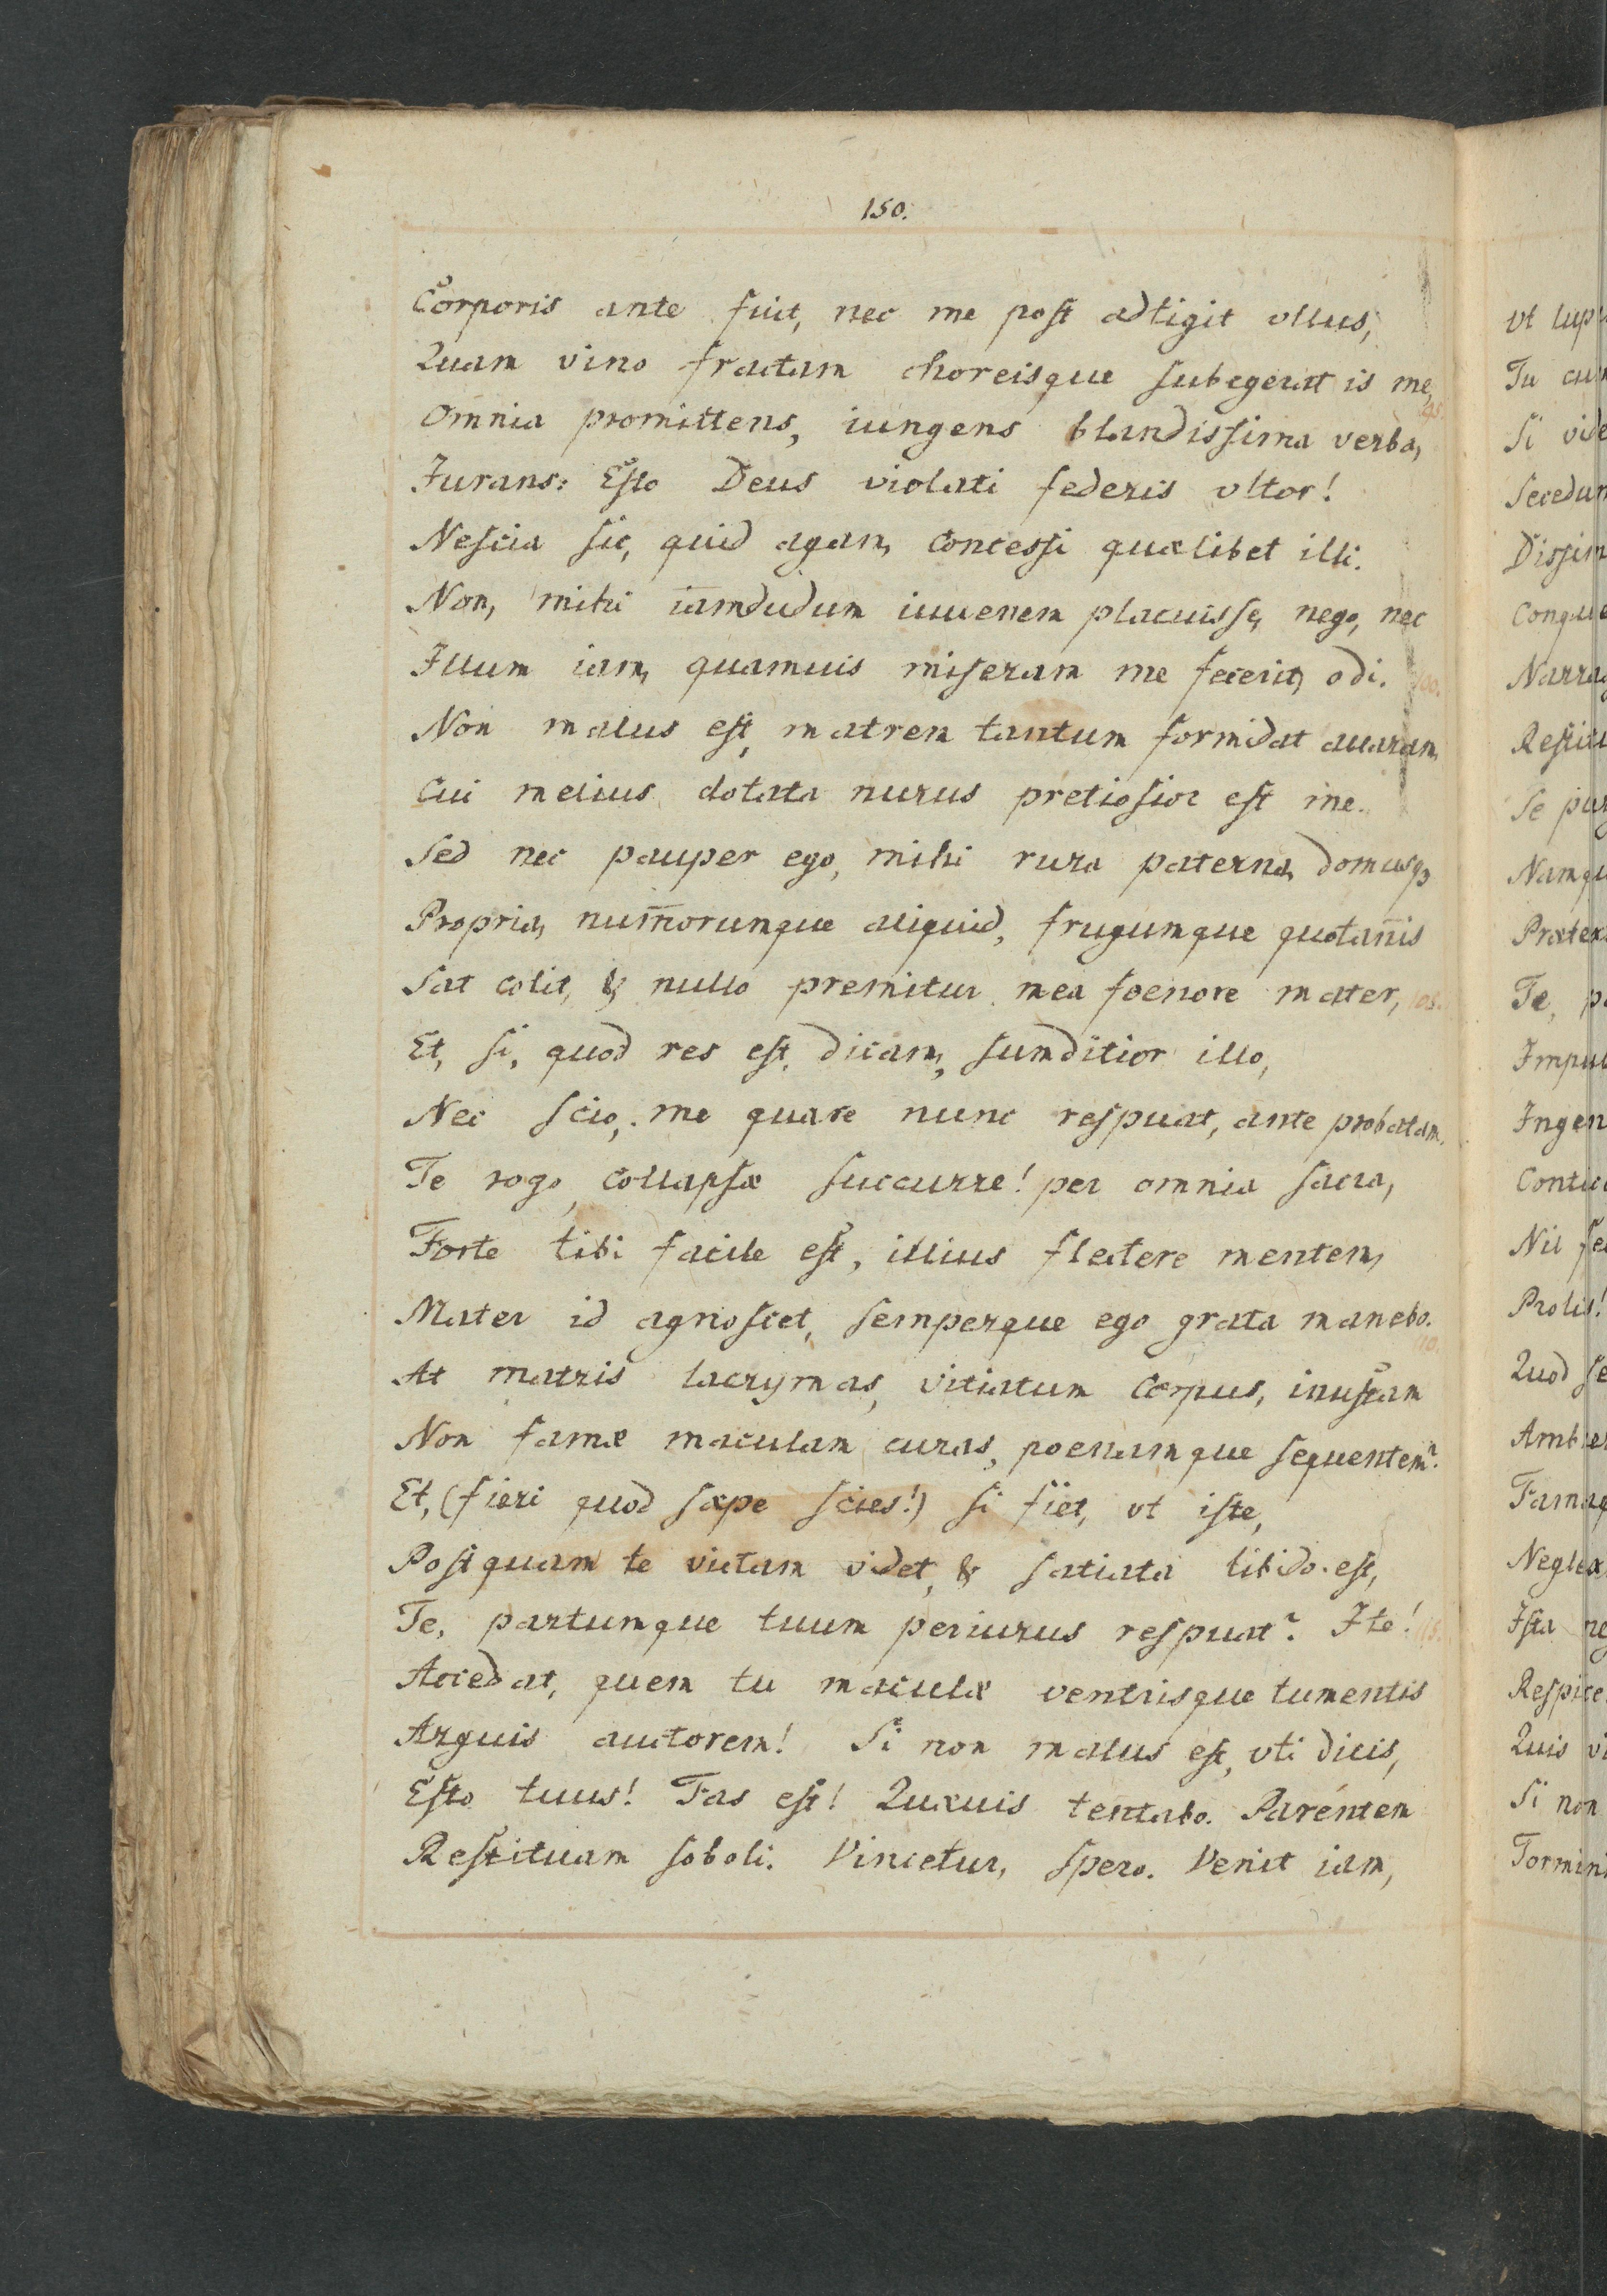 150.
Corporis ante fuit, nec me post adtigit vllus,
Quam vino fractam choreisque subegerat is me,
95.
Omnia promittens, iungens blandissima verba,
Jurans: Esto Deus violati federis vltor!
Nescia sic, quid agam, concessi quælibet illi.
Non, mihi iamdudum iuuenem placuisse, nego, nec
Illum iam, quamuis miseram me fecerit, odi. 100.
Non malus est, matrem tantum formidat auaram,
Cui melius dotata nurus pretiosior est me.
Sed nec pauper ego, mihi rura paterna, domusqȝ
Propria, num̄orumque aliquid, frugumque quotan̄is
Sat colit, & nullo premitur mea foenore mater, 105.
Et, si, quod res est, dicam, sum ditior illo,
Nec scio, me quare nunc respuat, ante probatam.
Te rogo, collapsæ succurre! per omnia sacra,
Forte tibi facile est, illius flectere mentem,
Mater id agnoscet, semperque ego grata manebo.
110.
At matris lacrymas, vitiatum corpus, inustam
Non famæ maculam curas, poenamque sequentem?
Et, (fieri quod sæpe scies!) si fiet, vt iste,
Postquam te victam videt, & satiata libido est,
Te, partumque tuum periurus respuat? Ite! 115.
Accedat, quem tu maculæ ventrisque tumentis
Arguis auctorem! Si non malus est, vti dicis,
Esto tuus! Fas est! Quæuis tentabo. Parentem
Restituam soboli. Vincetur, spero. Venit iam,
vt lup
Tu cum
Si vide
Secedun
Dissim
Conque
Narra
Restitu
Se
Namqu
Prætex
Te, p
Impu
Ingen
Contic
Nil fe
Prolis!
Quod se
Amb
Fama
Neglex
Ista ne
Respice
Quis vi
Si non
Tormin